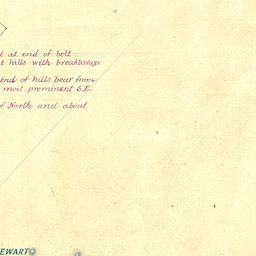 t at end of belt
t hills with breakaways
end of hills bear from
most prominent S.E.
of North and about
EWART